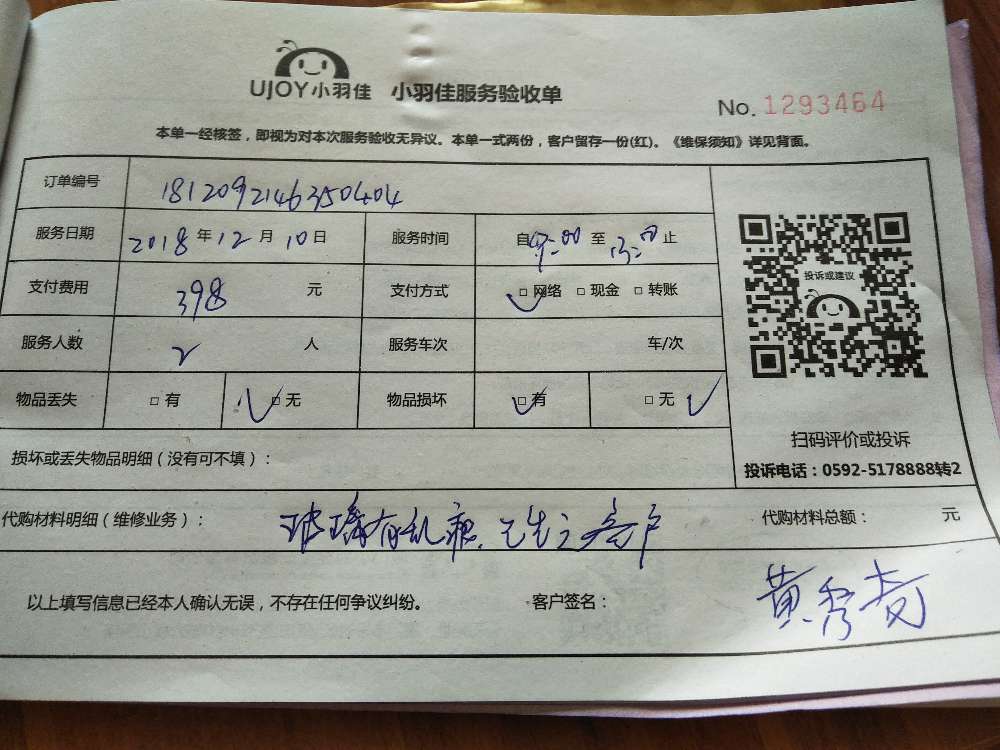 UJOY小羽佳 小羽佳服务验收单
No. 1293464
本单一经核签，即视为对本次服务验收无异议。本单一式两份，客户留存一份(红)。《维保须知》详见背面。
订单编号 181209214635040404
服务日期 2018 年 12 月 10 日 服务时间 自 9:00 至 13:00 止
支付费用 398 元 支付方式 □ 网络 □ 现金 □ 转账
服务人数 2 人 服务车次 车/次
物品丢失 □ 有 □ 无 物品损坏 □ 有 □ 无
投诉或建议
扫码评价或投诉
投诉电话：0592-5178888转2
损坏或丢失物品明细（没有可不填）：
代购材料明细（维修业务）： 玻璃有 客户 代购材料总额： 元
以上填写信息已经本人确认无误，不存在任何争议纠纷。 客户签名： 黄秀